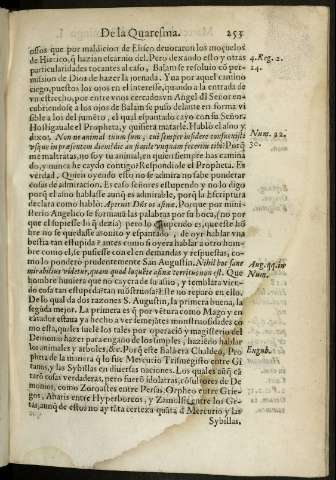 De la Quaresma. 253
ossos que por maldicion de Eliseo deuoraron los moçuelos
de Hierico, q̃ haziã escarnio del. Pero dexando esto y otras 4. Reg. 2.
particularidades tocantes al caso, Balam se resoluio cõ per- 24.
mission de Dios de hazer la jornada. Yua por aquel camino
ciego, puestos los ojos en el interesse, quando a la entrada de
vn estrecho, por entre vnos cercados vn Angel dl Señor en-
cubriendose a los ojos de Balam se puso delante en forma vi
sible a los del jumẽto, el qual espantado cayo con su Señor.
Hostigauale el Propheta, y quisiera matarle. Hablò el asno y
dixo: Non ne animal tuum sum, cui semper insidere consueuisti Num. 22.
vsque in præsentem diem? dic an simile vnquam fecerim tibi? Porq̃ 30.
me maltratas, no soy tu animal, en quien siempre has camina
do, y nunca he caydo contigo? Respondiole el Propheta. Es
verdad. Quien oyendo esto no se admira no sabe ponderar
cosas de admiracion. Es caso señores estupendo y no lo digo
porq̃ el asno hablasse aunq̃ es admirable, porq̃ la Escriptura
declara como hablò: Aperuit Dñs os asinæ. Porque por minis-
terio Angelico se formauã las palabras por su boca, (no por
que el supiesse lo q̃ dezia) pero lo estupendo es, que este hõ
bre no se quedasse atonito y espantado, de oyr hablar vna
bestia tan estupida: antes como si oyera hablar a otro hom-
bre como el, se pusiesse con el en demandas y respuestas, co-
mo lo pondero prudentemente San Augustin. Nihil hoc sane Aug. qq. in
mirabilius videtur, quam quod loquẽte asina territus non est. Que Num.
hombre huuiera que no cayera de su asno, y temblara vien-
do cosa tan estupida? tan mõstruosa? este no reparò en ello.
De lo qual da dos razones S. Augustin, la primera buena, la
segũda mejor. La primera es q̃ por vẽtura como Mago y en
cãtador estaua ya hecho a ver semejãtes monstruosidades co
mo esta, quales suele los tales por operaciõ y magisterio del
Demonio hazer para engaño de los simples, haziẽdo hablar
los animales y arboles, &c. Porq̃ este Balam era Chaldeo, Pro Eugub.
pheta de la manera q̃ lo fue Mercurio Trismegisto entre Gi
tanos, y las Sybillas en diuersas naciones. Los quales aũq̃ cã
tarõ cosas verdaderas, pero fuerõ idolatras, cõsultores de De
monios, como Zoroastes entre Persas, Orpheo entre Grie-
gos, Abaris entre Hyperboreos, y Zamolsis entre los Ge-
tas, aunq̃ de estos no ay tãta certeza quãta d Mercurio y las
Sybillas,